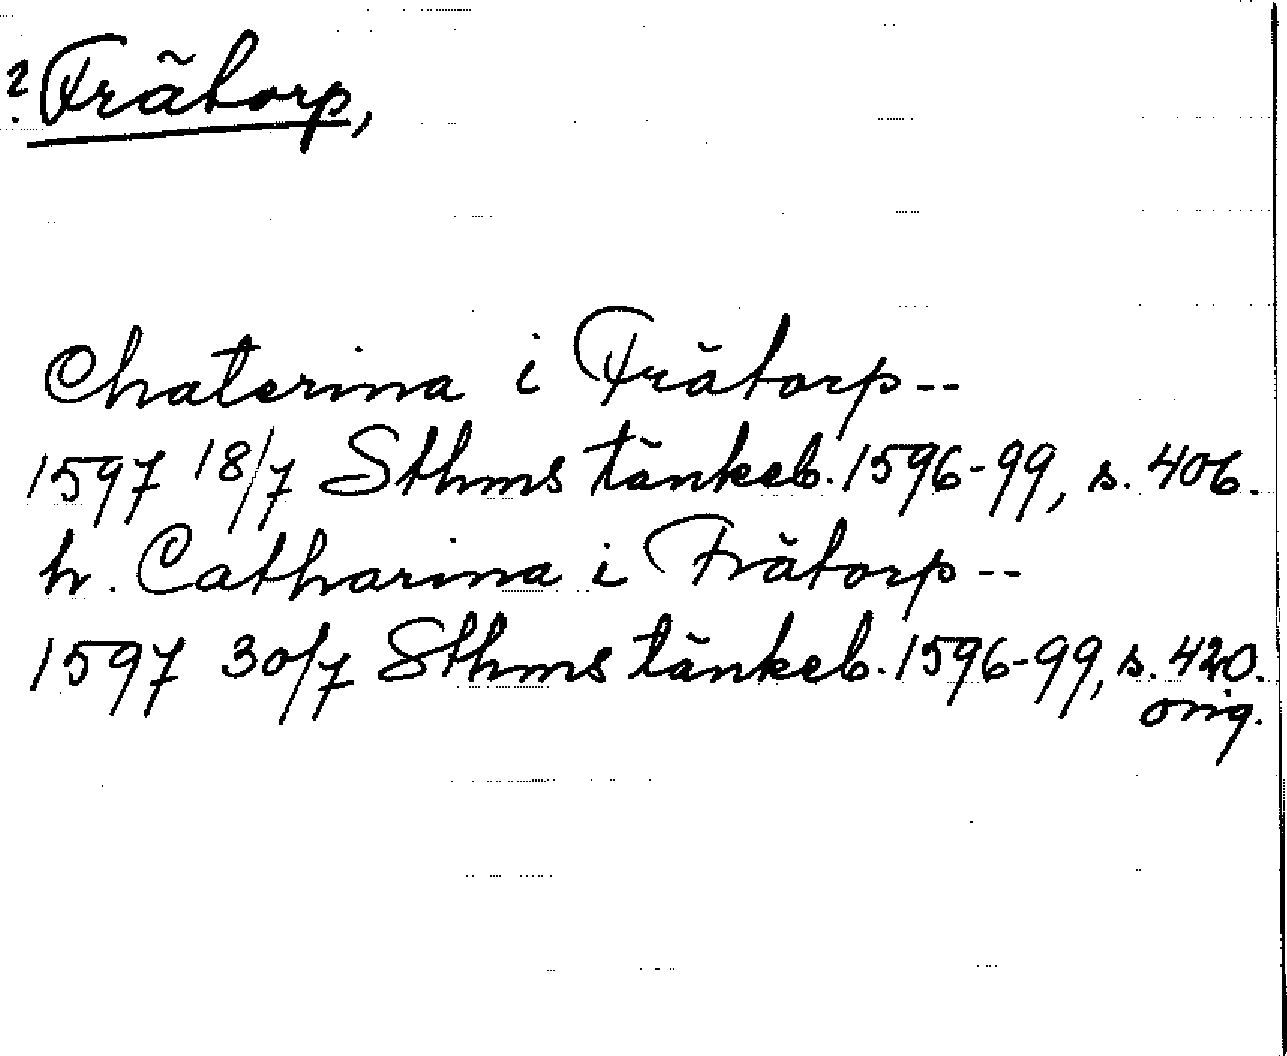 ? Frätorp,
Chaterina i Frätorp--
1597 18/7 Sthms tänkeb. 1596-99, s. 406.
h. Catharina i Frätorp--
1597 30/7 Sthms tänkeb. 1596-99, s. 420.
orig.